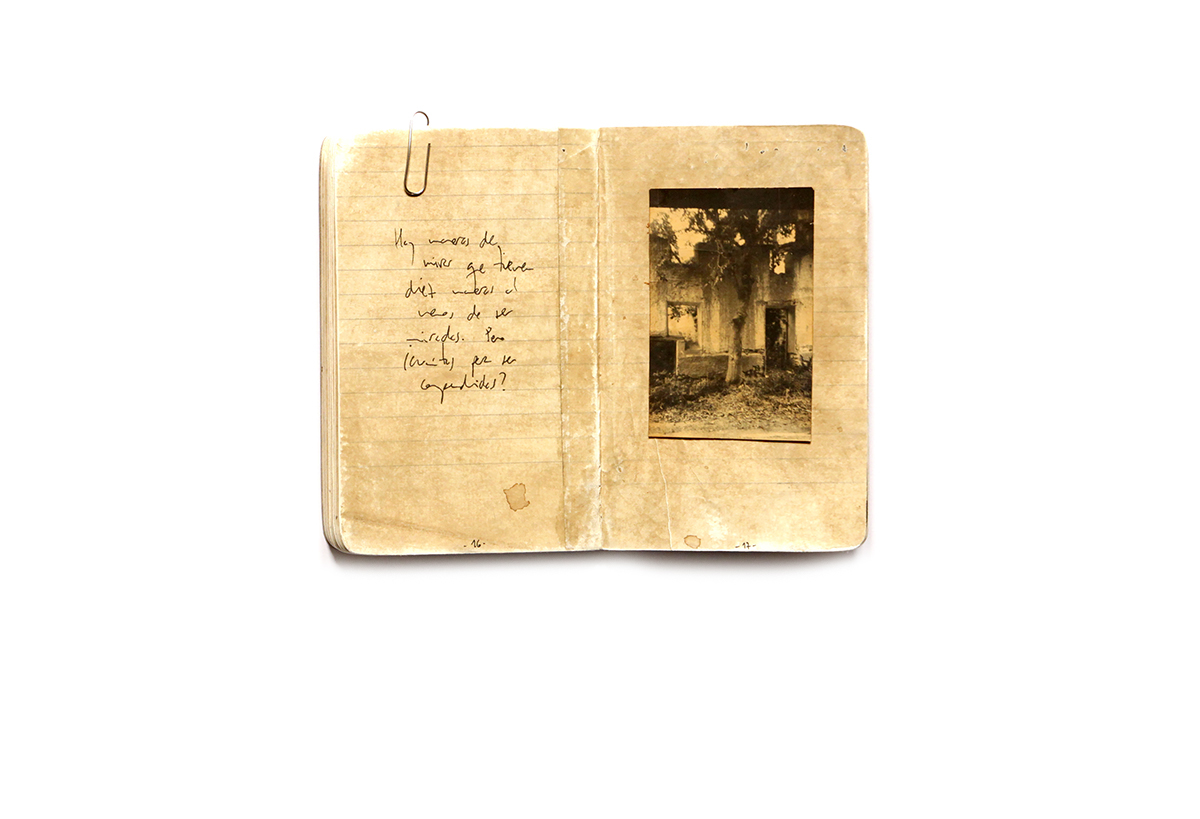 Hay maneras de
mirar que tienen
diez maneras al
menos de ser
miradas. Pero
¿cuántas para ser
comprendidas?
-16-
-17-